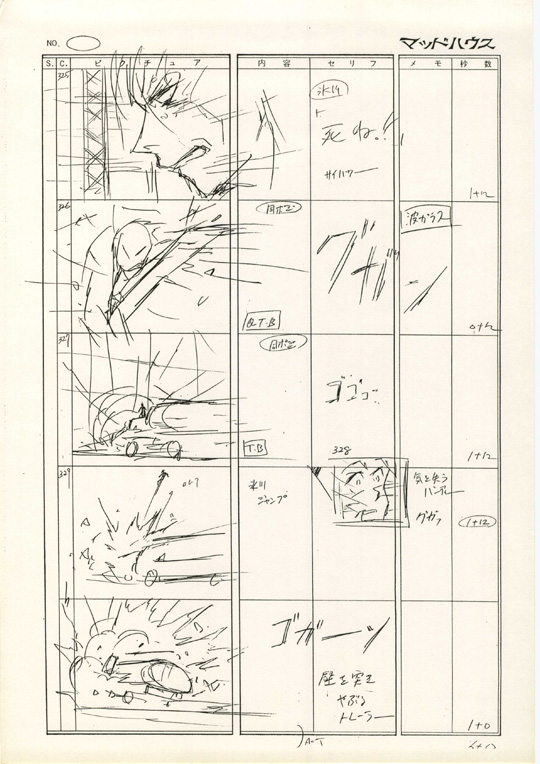 NO.
マッドハウス
S. C. ピクチュア 内容 セリフ メモ 秒数
325
氷川
死ね!!
サイパワー
1+12
326
月ホエ
グガガ
波ガラス
Q.T.B
0+12
327
月ホエ
ゴゴゴ
T.B
1+12
328
329
氷川
ジャンプ
気を失う
ハンディー
グガッ
1+12
ゴガーッ
壁を突き
やぶる
トレーラー
1+0
A・T